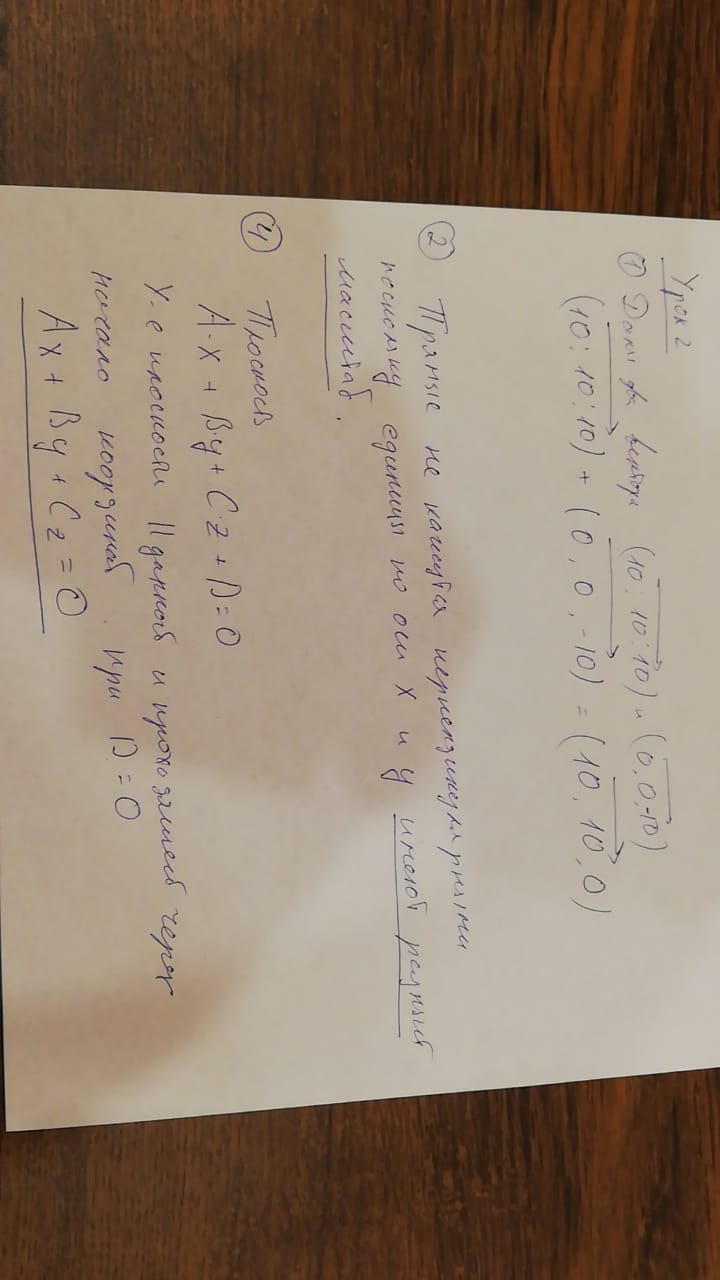 Урок 2
① Даны два вектора (10; 10; 10) и (0, 0, -10)
(10; 10; 10) + (0, 0, -10) = (10, 10, 0)
② Прямые не кажутся перпендикулярными
поскольку единицы по оси x и y имеют разный
масштаб.
④ Плоскость
A·x + B·y + C·z + D = 0
У-е плоскости || данной и проходящей через
начало координат при D = 0
Ax + By + Cz = 0